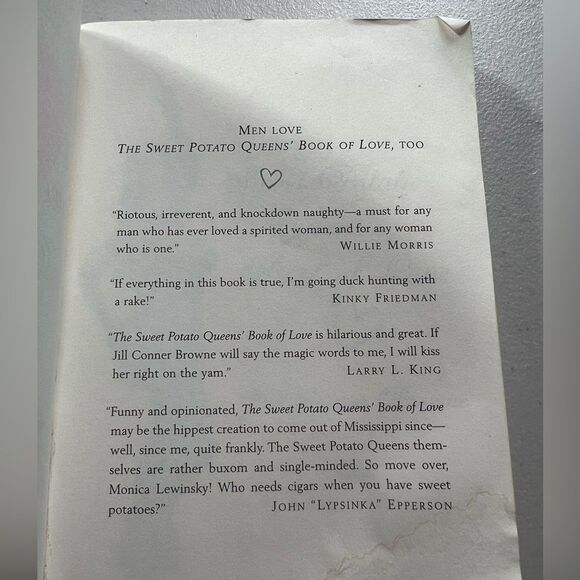 MEN LOVE
THE SWEET POTATO QUEENS' BOOK OF LOVE, TOO
"Riotous, irreverent, and knockdown naughty—a must for any
man who has ever loved a spirited woman, and for any woman
who is one." WILLIE MORRIS
"If everything in this book is true, I'm going duck hunting with
a rake!" KINKY FRIEDMAN
"The Sweet Potato Queens' Book of Love is hilarious and great. If
Jill Conner Browne will say the magic words to me, I will kiss
her right on the yam." LARRY L. KING
"Funny and opinionated, The Sweet Potato Queens' Book of Love
may be the hippest creation to come out of Mississippi since—
well, since me, quite frankly. The Sweet Potato Queens them-
selves are rather buxom and single-minded. So move over,
Monica Lewinsky! Who needs cigars when you have sweet
potatoes?" JOHN "LYPSINKA" EPPERSON